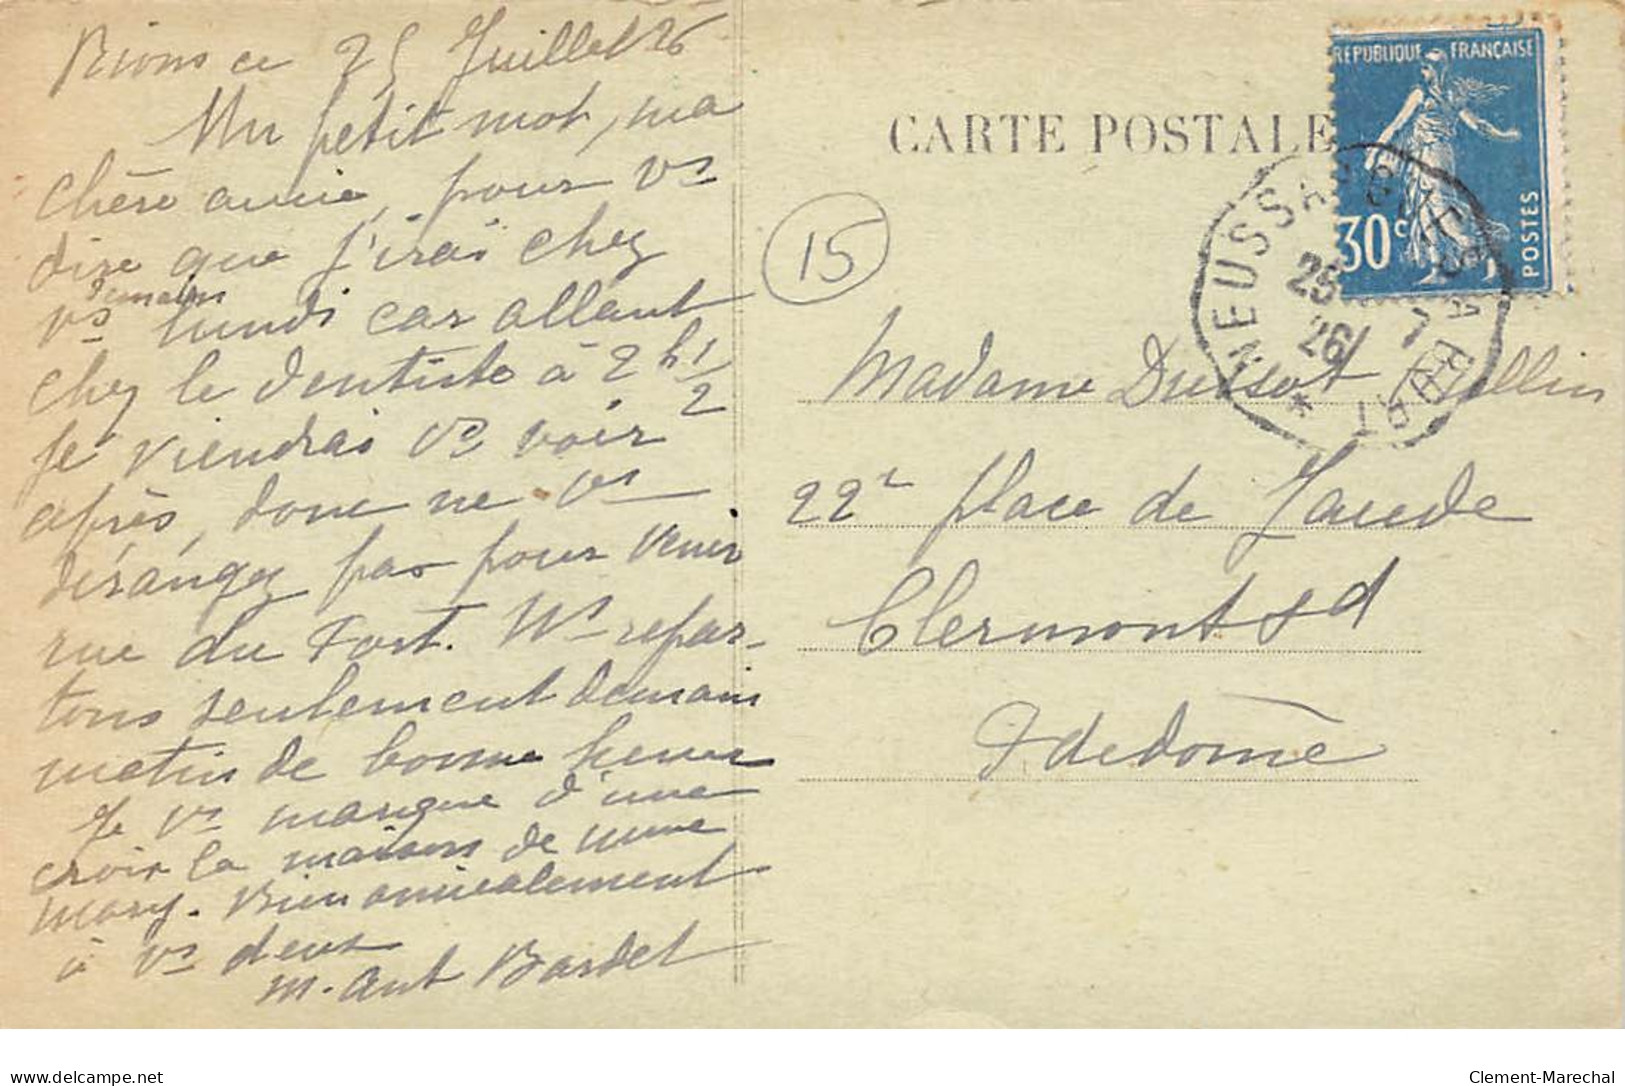 Rions ce 25 Juillet 26
Un petit mot, ma
chère amie, pour vs
dire que j'irai chez
demain
vs lundi car allant
chez le dentiste à 2 h 1/2
je viendrai vs voir
après, donc ne vs
dérangez pas pour venir
rue du Fort. Ns repar-
tons seulement demain
matin de bonne heure
Je vs marque d'une
croix la maison de Mme
Mary. Bien amicalement
à vs deux
M. Ant Bardet
CARTE POSTALE
REPUBLIQUE FRANÇAISE
30c
POSTES
NEUSSARGUES A
25 7
26
15
Madame Dussot
22 place de Jaude
Clermont Fd
P de Dôme
Clement-Marechal
www.delcampe.net